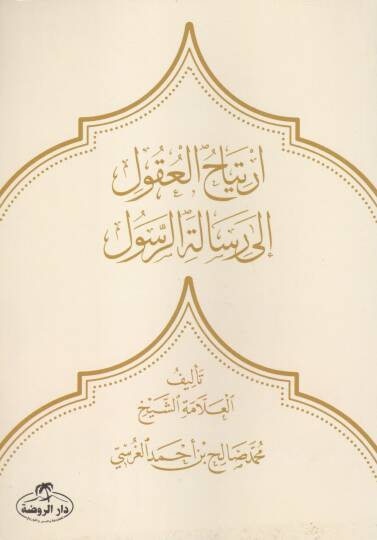 ارتياح العقول
إلى رسالة الرسول
تأليف
العلامة الشيخ
محمد صالح بن أحمد الغرسي
دار الروضة